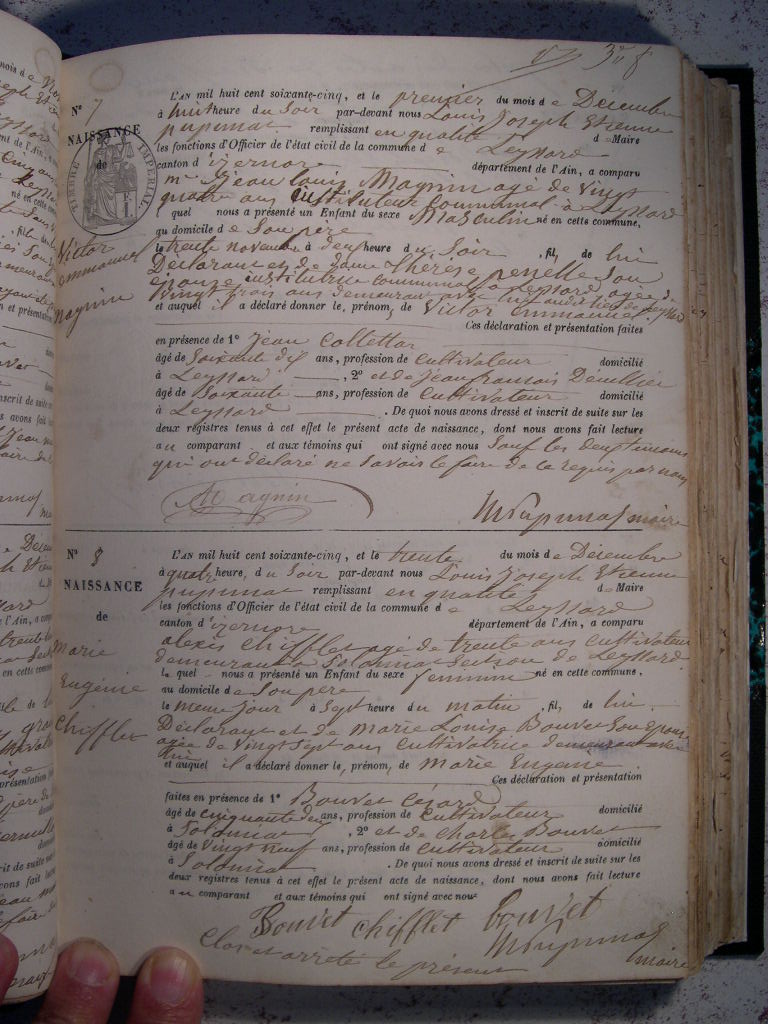 308
N° 7
NAISSANCE
de
TIMBRE IMPERIAL
Victor
emmanuel
magnin
L'AN mil huit cent soixante-cinq, et le premier du mois de Décembre
à huit heure du Soir par-devant nous Louis Joseph Etienne
pupunat remplissant en qualité de Maire
les fonctions d'Officier de l'état civil de la commune de Leyssard
canton d'izernore département de l'Ain, a comparu
mr Jean Louis Magnin agé de vingt
quatre ans instituteur communal à Leyssard
quel nous a présenté un Enfant du sexe Masculin né en cette commune,
au domicile de Son père
le trente novembre à deux heure du Soir, fil, de lui
Déclarant et de dame thérèse penelle Son
épouse institutrice communale a Leyssard agée de
vingt trois ans demeurant avec lui audit lieu de Leyssard
et auquel il a déclaré donner le, prénom, de Victor emmanuel.
Ces déclaration et présentation faites
en présence de 1° Jean Collettaz
âgé de Soixante dix ans, profession de Cultivateur domicilié
à Leyssard, 2° et de Jean francois
âgé de Soixante ans, profession de Cultivateur domicilié
à Leyssard. De quoi nous avons dressé et inscrit de suite sur les
deux registres tenus à cet effet le présent acte de naissance, dont nous avons fait lecture
au comparant et aux témoins qui ont signé avec nous Sauf les deux temoins
qui ont déclaré ne Savoir le faire de ce requis par nous
Magnin
Mr pupunat maire
N° 8
NAISSANCE
de
Marie
Eugénie
Chifflet
L'AN mil huit cent soixante-cinq, et le trente du mois de Décembre
à quatre heure, du Soir par-devant nous Louis Joseph Etienne
pupunat remplissant en qualité de Maire
les fonctions d'Officier de l'état civil de la commune de Leyssard
canton d'izernore département de l'Ain, a comparu
alexis Chifflet agé de trente ans cultivateur
demeurant a Solomiat Section de Leyssard
Lequel nous a présenté un Enfant du sexe feminin né en cette commune,
au domicile de Son père
le meme jour à Sept heure du matin, fil, de lui
Déclarant et de marie Louise Bouvet Son épouse
agée de vingt Sept ans cultivatrice demeurant avec
lui
et auquel il a déclaré donner le, prénom, de marie Eugenie
Ces déclaration et présentation
faites en présence de 1° Bouvet Césard
âgé de cinquante deux ans, profession de Cultivateur domicilié
à Solomiat, 2° et de Charles Bouvet
âgé de vingt neuf ans, profession de cultivateur domicilié
à Solomiat. De quoi nous avons dressé et inscrit de suite sur les
deux registres tenus à cet effet le présent acte de naissance, dont nous avons fait lecture
au comparant et aux témoins qui ont signé avec nous
Bouvet chifflet bouvet
Mr pupunat maire
Clos et arrêté le présent